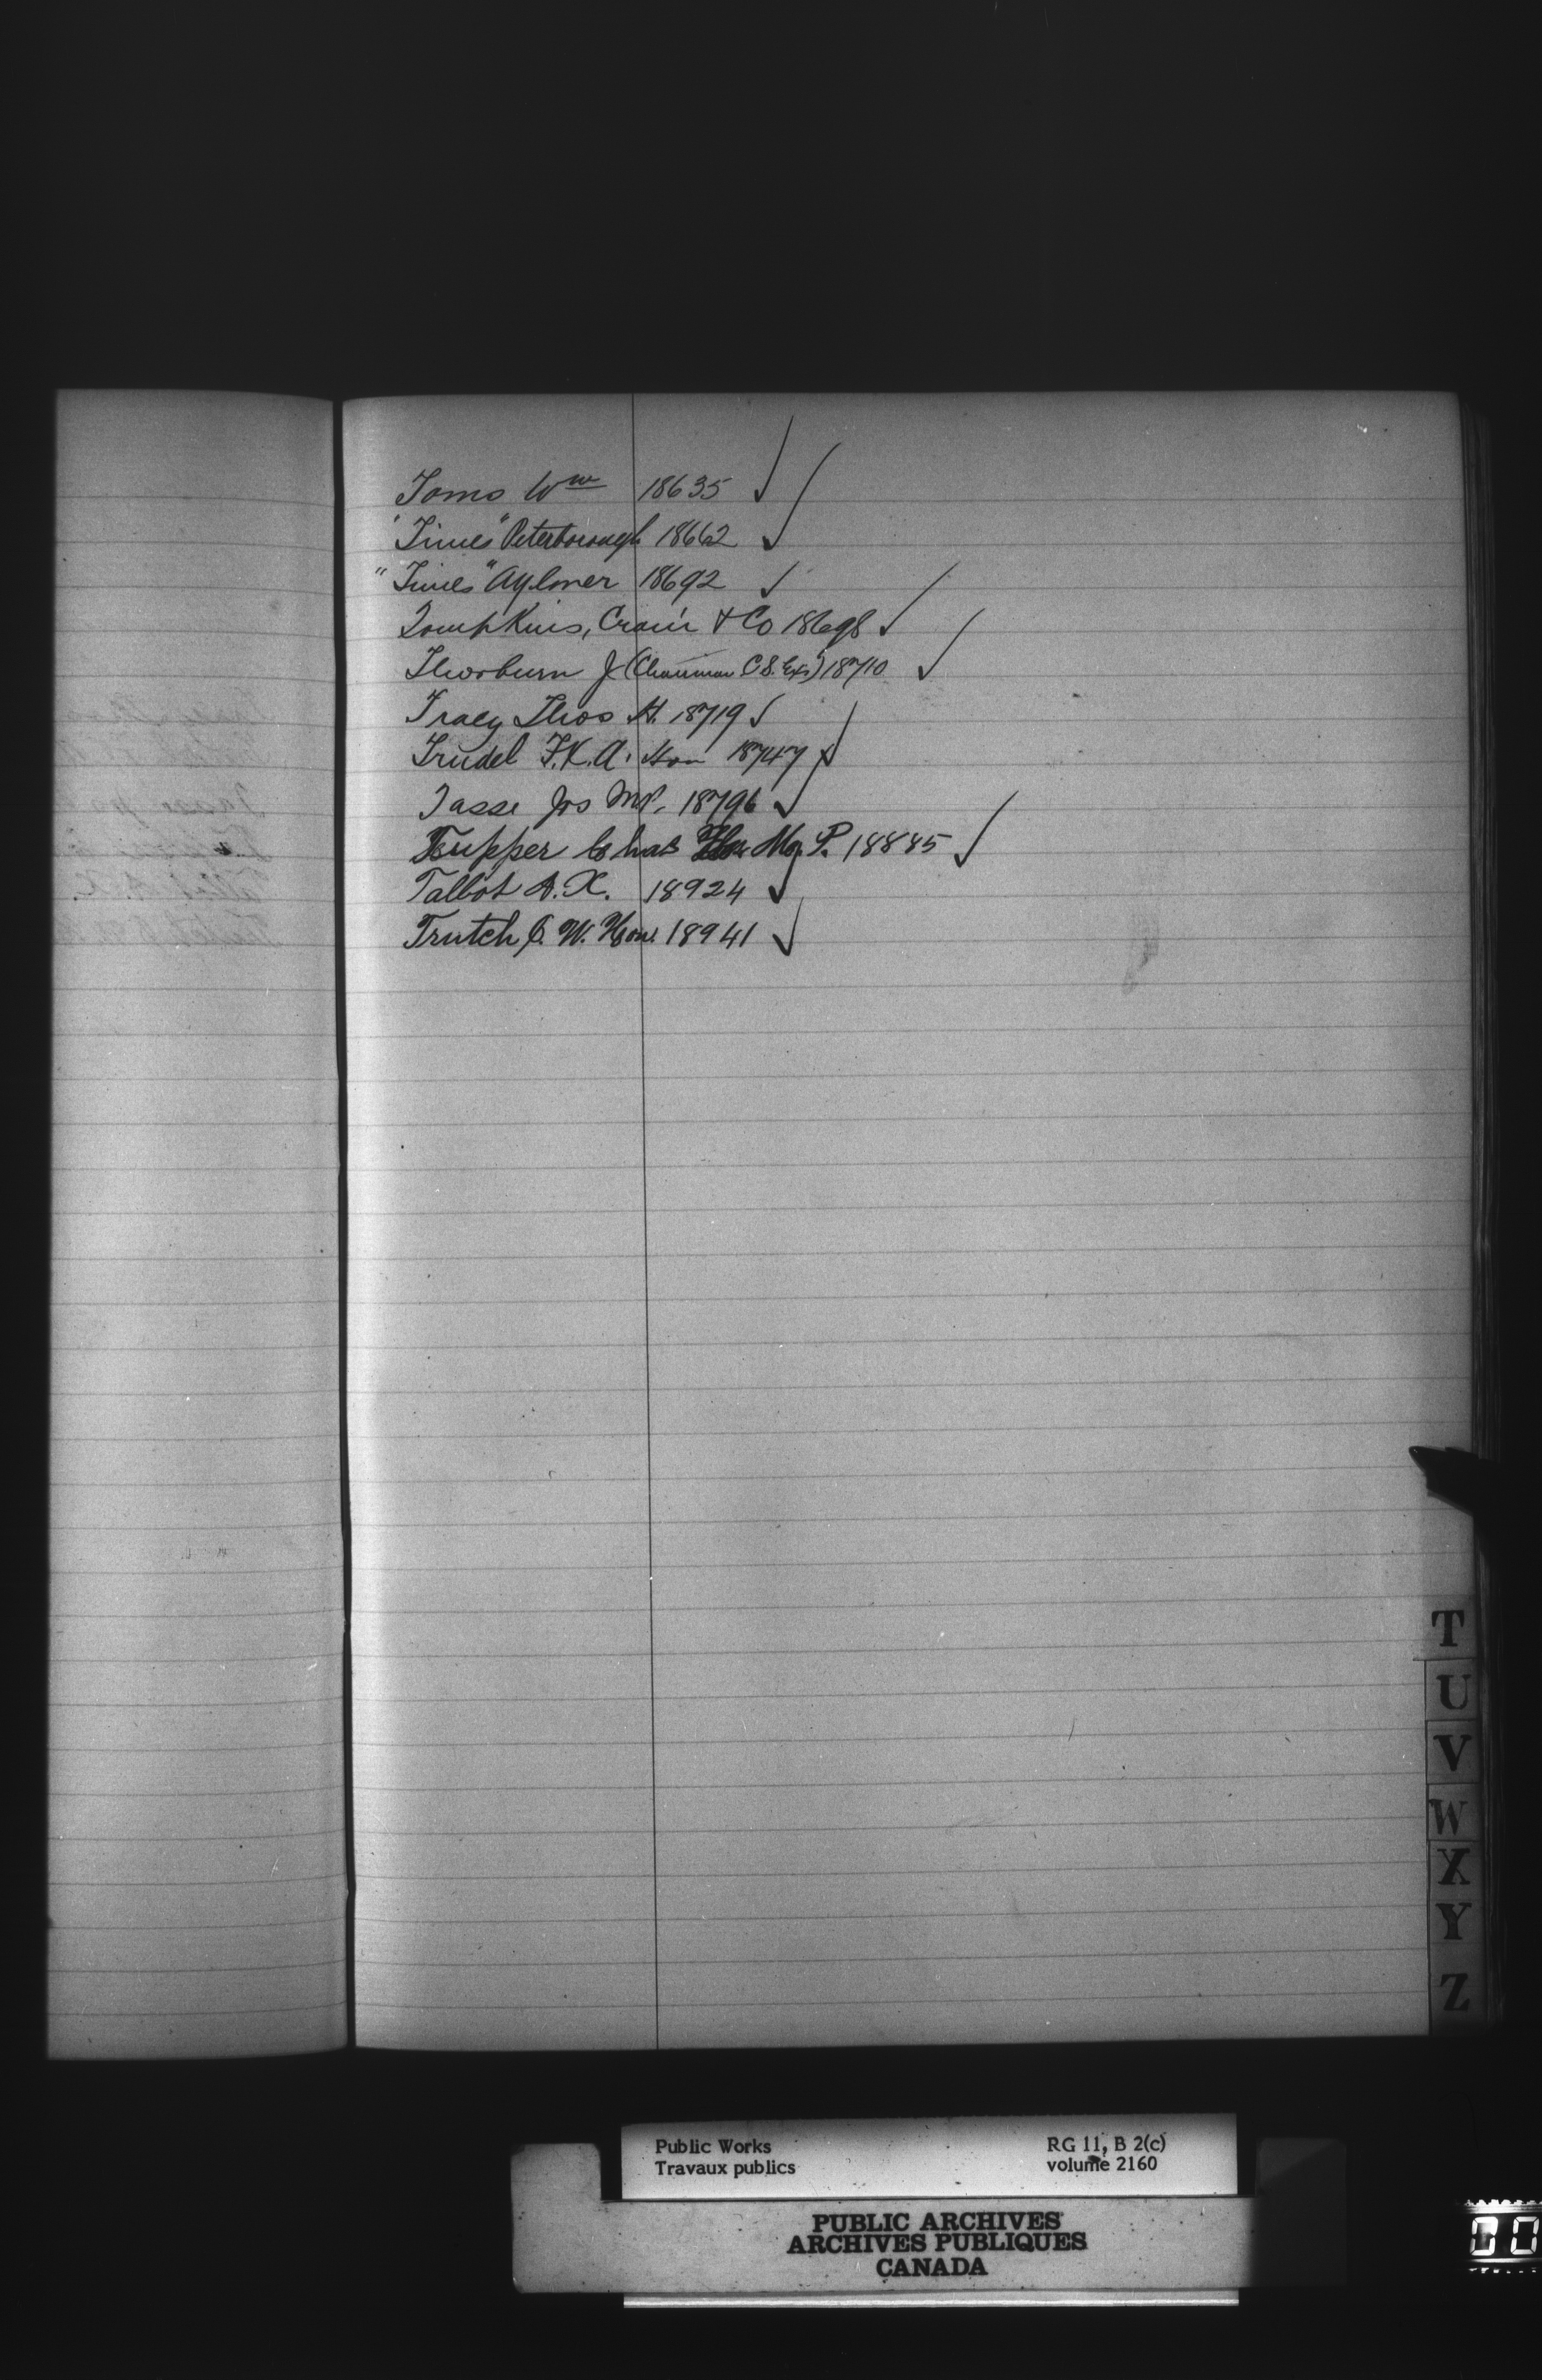 Toms Wm 18635 ✓
"Times" Peterborough 18662 ✓
"Times" Aylmer 18692 ✓
Tompkins, Crain & Co 18698 ✓
Thorburn J (Chairman C S. Exs) 18710 ✓
Tracy Thos H. 18719 ✓
Trudel F.X.A. Hon 18747 ✓
Tasse Jos MP. 18796 ✓
Tupper Chas M. P. 18885 ✓
Talbot A. X. 18924 ✓
Trutch J. W. Hon. 18941 ✓
T
U
V
W
X
Y
Z
Public Works
Travaux publics
RG 11, B 2(c)
volume 2160
PUBLIC ARCHIVES
ARCHIVES PUBLIQUES
CANADA
00